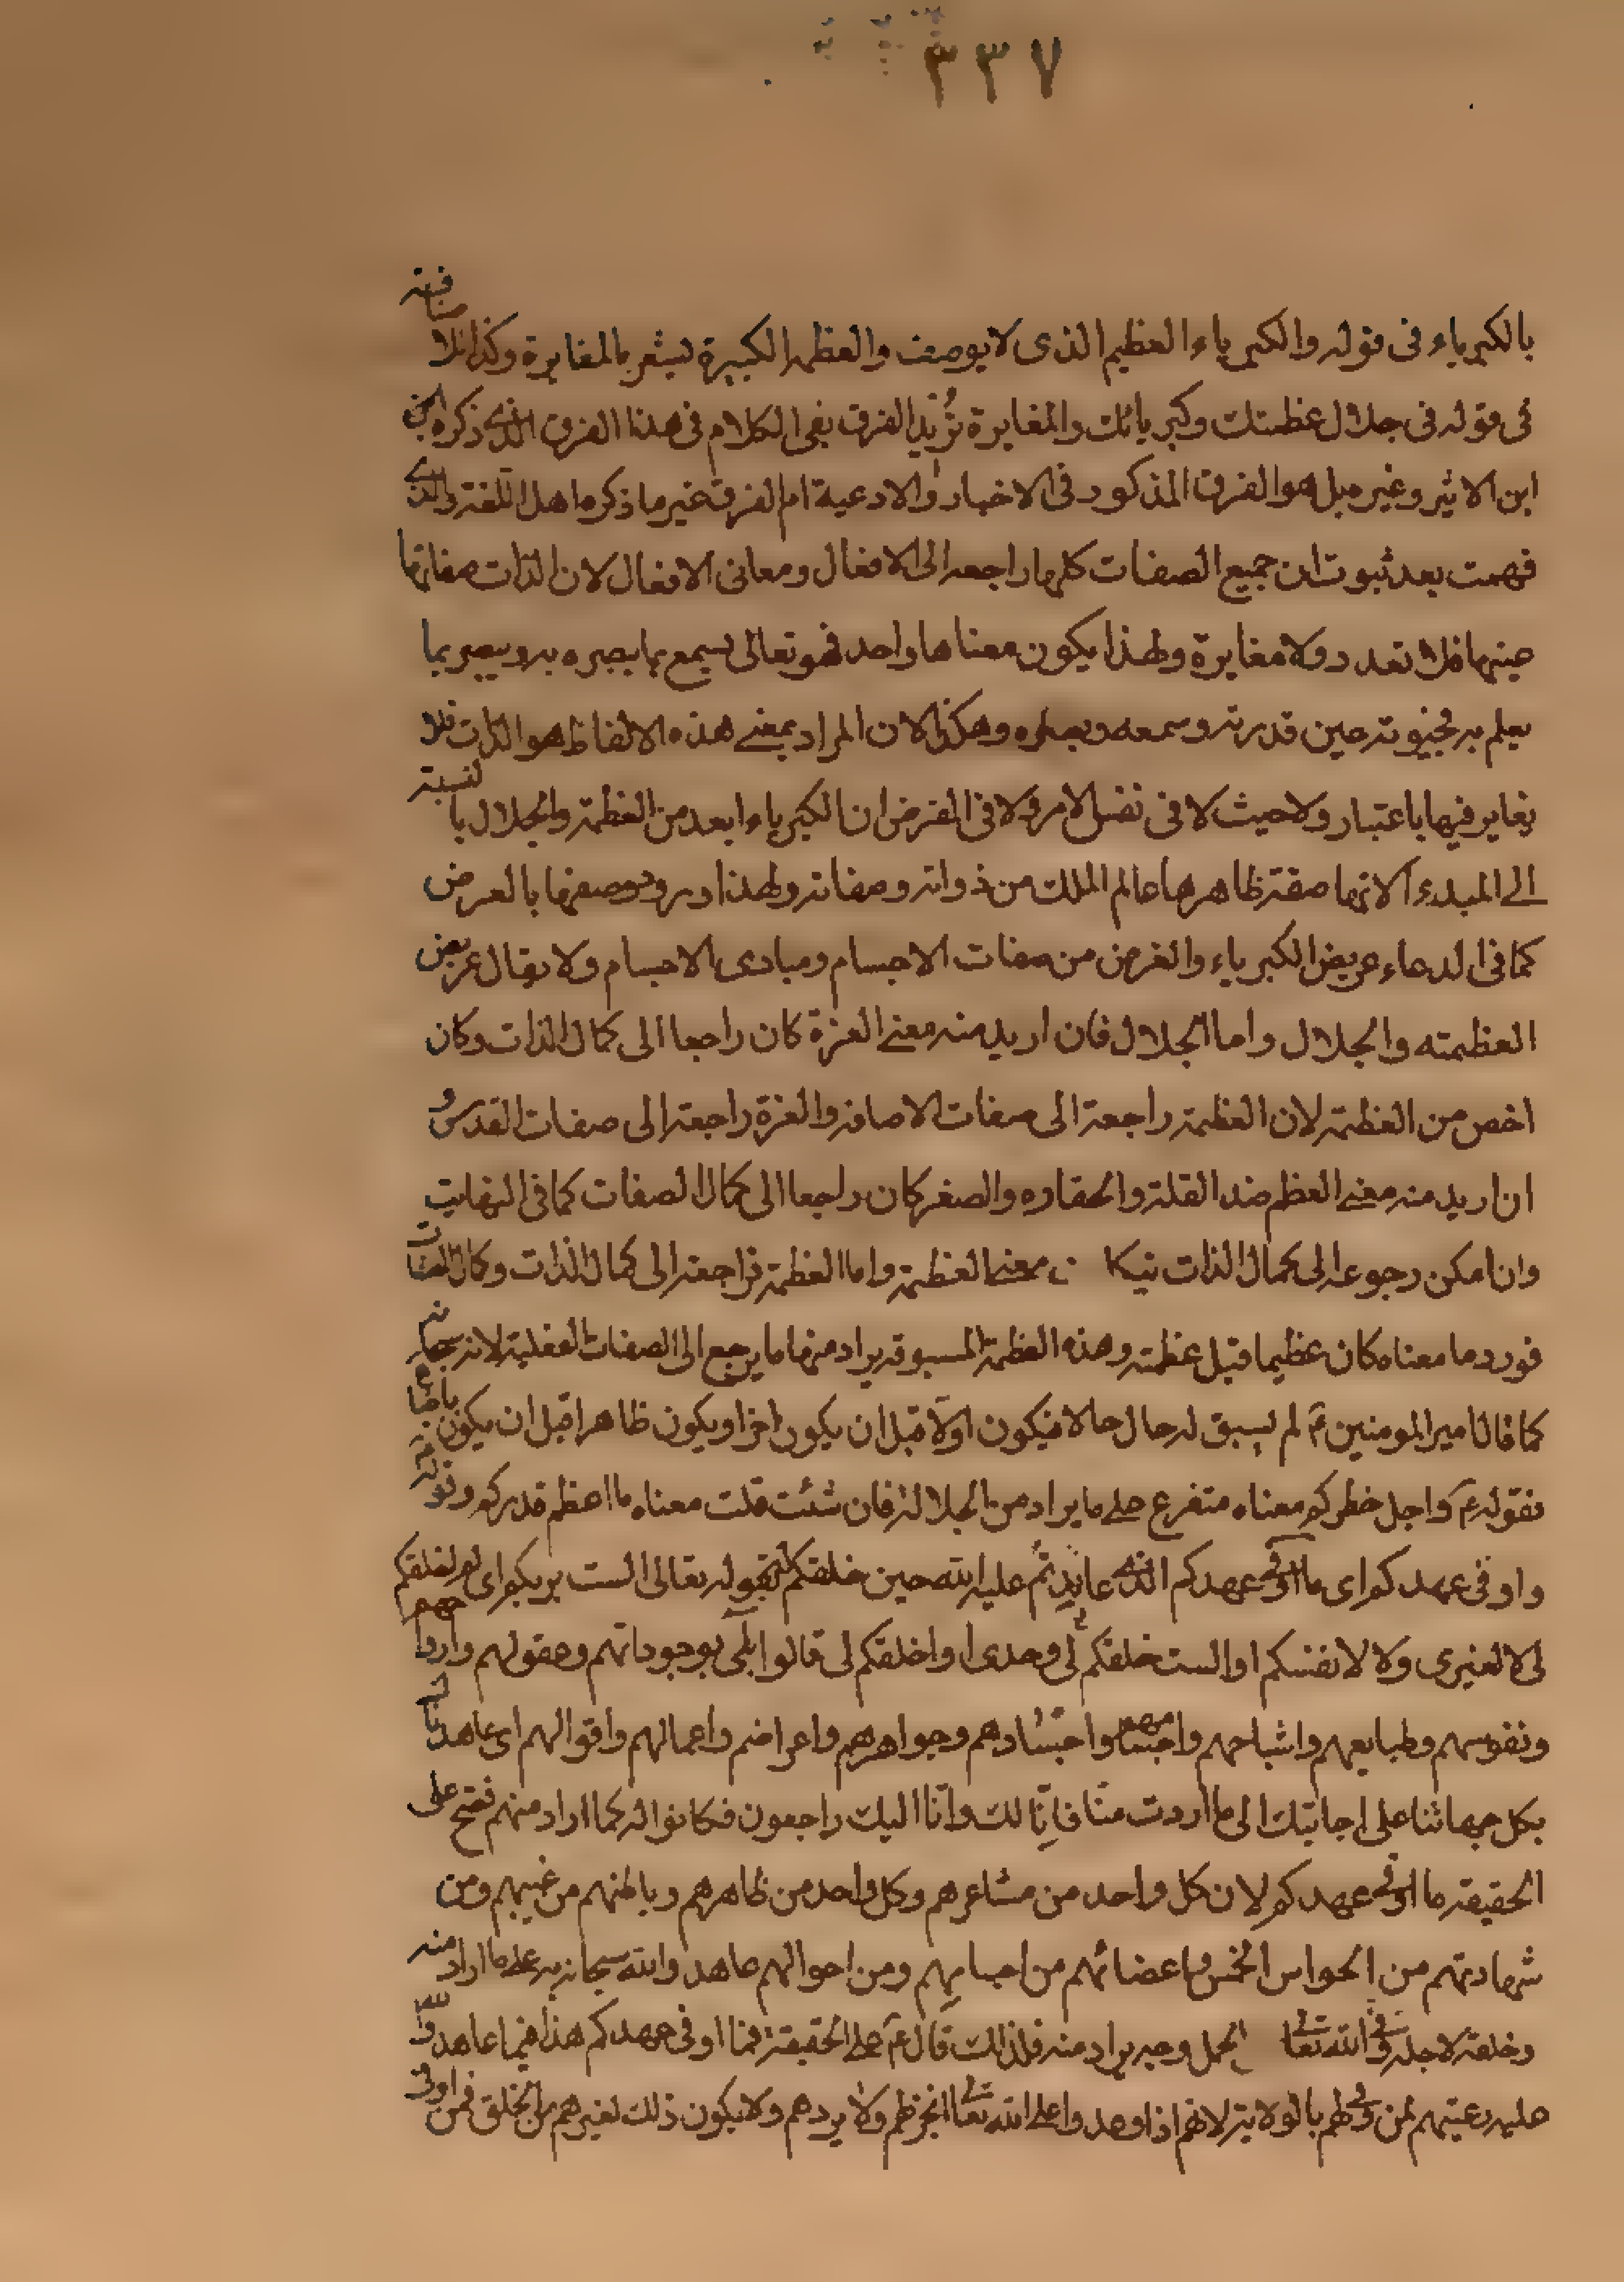 ٣٣٧
بالكبرياء فى قوله والكبرياء العظيم الذى لا يوصف والعظمة الكبيرة ليشعر بالمغايرة وكذا الاضافة
فى قوله فى جلال عظمتك وكبريائك والمغايرة تؤيد الفرق بقى الكلام فى هذا الفرق الذى ذكره
ابن الاثير وغيره هل هو الفرق المذكور فى الاخبار والادعية ام الفرق غير ما ذكره اهل اللغة والذى
فهمت بعد ثبوت ان جميع الصفات كلها راجعه الى الافعال ومعانى الافعال لان الذات صفاتها
عينها فلا تعدد ولا مغايرة ولهذا يكون معناها واحد فهو تعالى يسمع بما يبصر به ويبصر بما
يعلم به فحيوته عين قدرته وسمعه وبصره وهكذا لان المراد بمعنى هذه الالفاظ هو الذات فلا
تغاير فيها باعتبار ولا حيث لا فى نفس الامر ولا فى الفرض ان الكبرياء ابعد من العظمة والجلال بالنسبة
الى المبدء لانها صفة ظاهرها عالم الملك من ذواته وصفاته ولهذا ورد وصفها بالعرض
كما فى الدعاء عريض الكبرياء والعرض من صفات الاجسام ومبادى الاجسام ولا يقال عريض
العظمته والجلال واما الجلال فان اريد منه معنى العزة كان راجعا الى كمال الذات وكان
اخص من العظمة لان العظمة راجعة الى صفات الاضافة والعزة راجعة الى صفات القدس و
ان اريد منه معنى العظم ضد القلة والحقاره والصغر كان راجعا الى كمال الصفات كما فى النهايت
وان امكن رجوعه الى كمال الذات معنى العظمة واما العظمة فراجعة الى كمال الذات وكمال الصفات
فورد ما معناه كان عظيما قبل عظمته وهذه العظمة المسبوقة يراد منها ما يرجع الى الصفات الفعلية لانه سبحانه
كما قال امير المومنين ع لم يسبق له حال حالا فيكون اولا قبل ان يكون اخرا ويكون ظاهرا قبل ان يكون باطنا
فقوله ع واجل خطركم معناه متفرع على ما يراد من الجلالة فان شئت قلت معناه ما اعظم قدركم وقوله ع
واوفى عهدكم اى ما اوفى عهدكم الذى عاهدتم عليه الله حين خلقكم بقوله تعالى الست بربكم اى الم اخلقكم
لى لا لغيرى ولا لانفسكم او الست خلقكم لى وحدى اواخلقكم لى قالوا بلى بوجوداتهم وعقولهم وارواحهم
ونفوسهم وطبايعهم واشباحهم واجسامهم واجسادهم وجواهرهم واعراضهم واعمالهم واقوالهم اى عاهدناك
بكل جهاتنا على اجابتك الى ما اردت منا فانا لك وانا اليك راجعون فكانوا له كما اراد منهم فصح على
الحقيقة ما اوفى عهدكم لان كل واحد من مشاعرهم وكل واحد من ظاهرهم وباطنهم من غيبهم ومن
شهادتهم من الحواس الخمس واعضائهم من اجسامهم ومن احوالهم عاهد والله سبحانه به على ما اراد منه
وخلقه لاجله وفى الله تعالى وجه يراد منه فلذلك قال ع على الحقيقة فما اوفى عهدكم هذا فيما عاهدوا الله
عليه رعيتهم لمن وفى لهم بالولاية لانهم اذا وعدوا على الله تعالى انجز لهم ولا يردهم ولا يكون ذلك لغيرهم من الخلق فمن اوفى